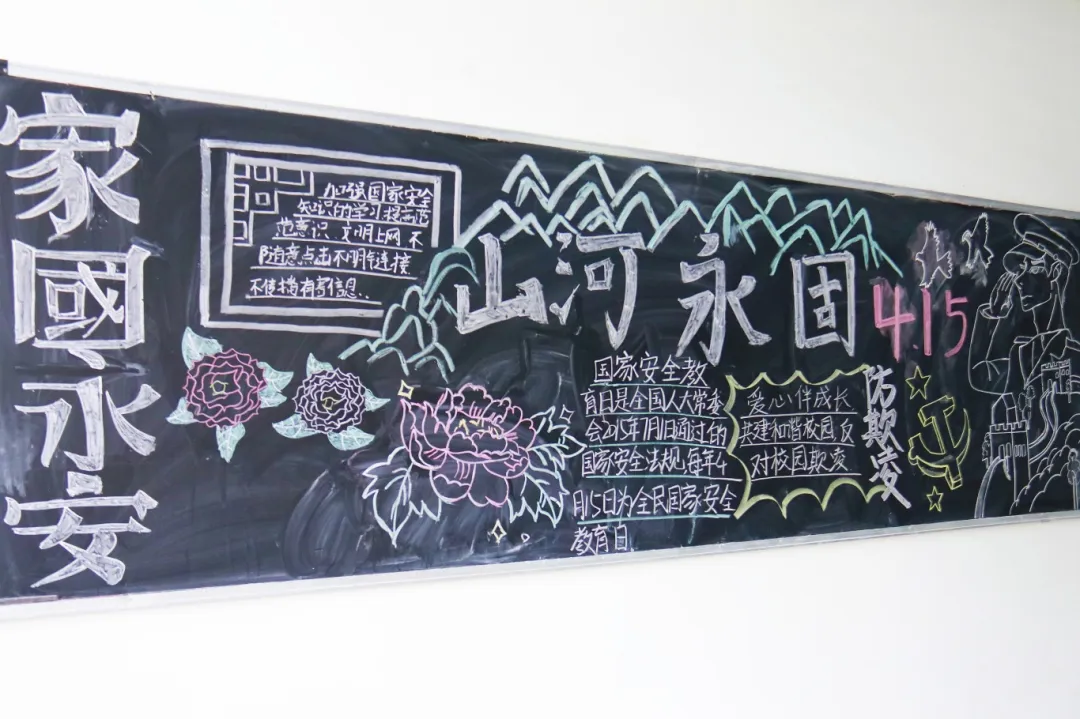 家國永安
加强国家安全
知识的学习 提高防
范意识 文明上网 不
随意点击不明链接
不传播有害信息..
山河永固
4.15
国家安全教
育日是全国人大常委
会2015年7月1日通过的
国家安全法规,每年4
月15日为全民国家安全
教育日
爱心伴成长
共建和谐校园,反
对校园欺凌
防欺凌